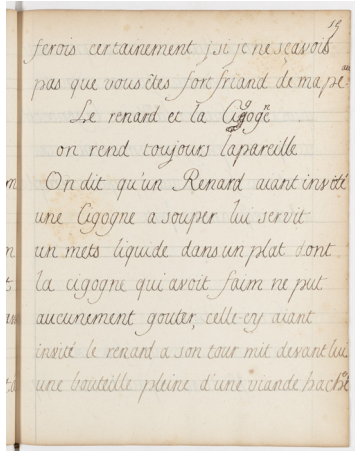 15
ferois certainement, si je ne sçavois
pas que vous êtes fort friand, de ma peau
Le renard et la Cigogne
on rend toujours la pareille
On dit qu'un Renard aiant invité
une Cigogne a souper lui servit
un mets liquide dans un plat dont
la cigogne qui avoit faim ne put
aucunement gouter, celle-cy aiant
invité le renard a son tour mit devant lui
une bouteille pleine d'une viande haché